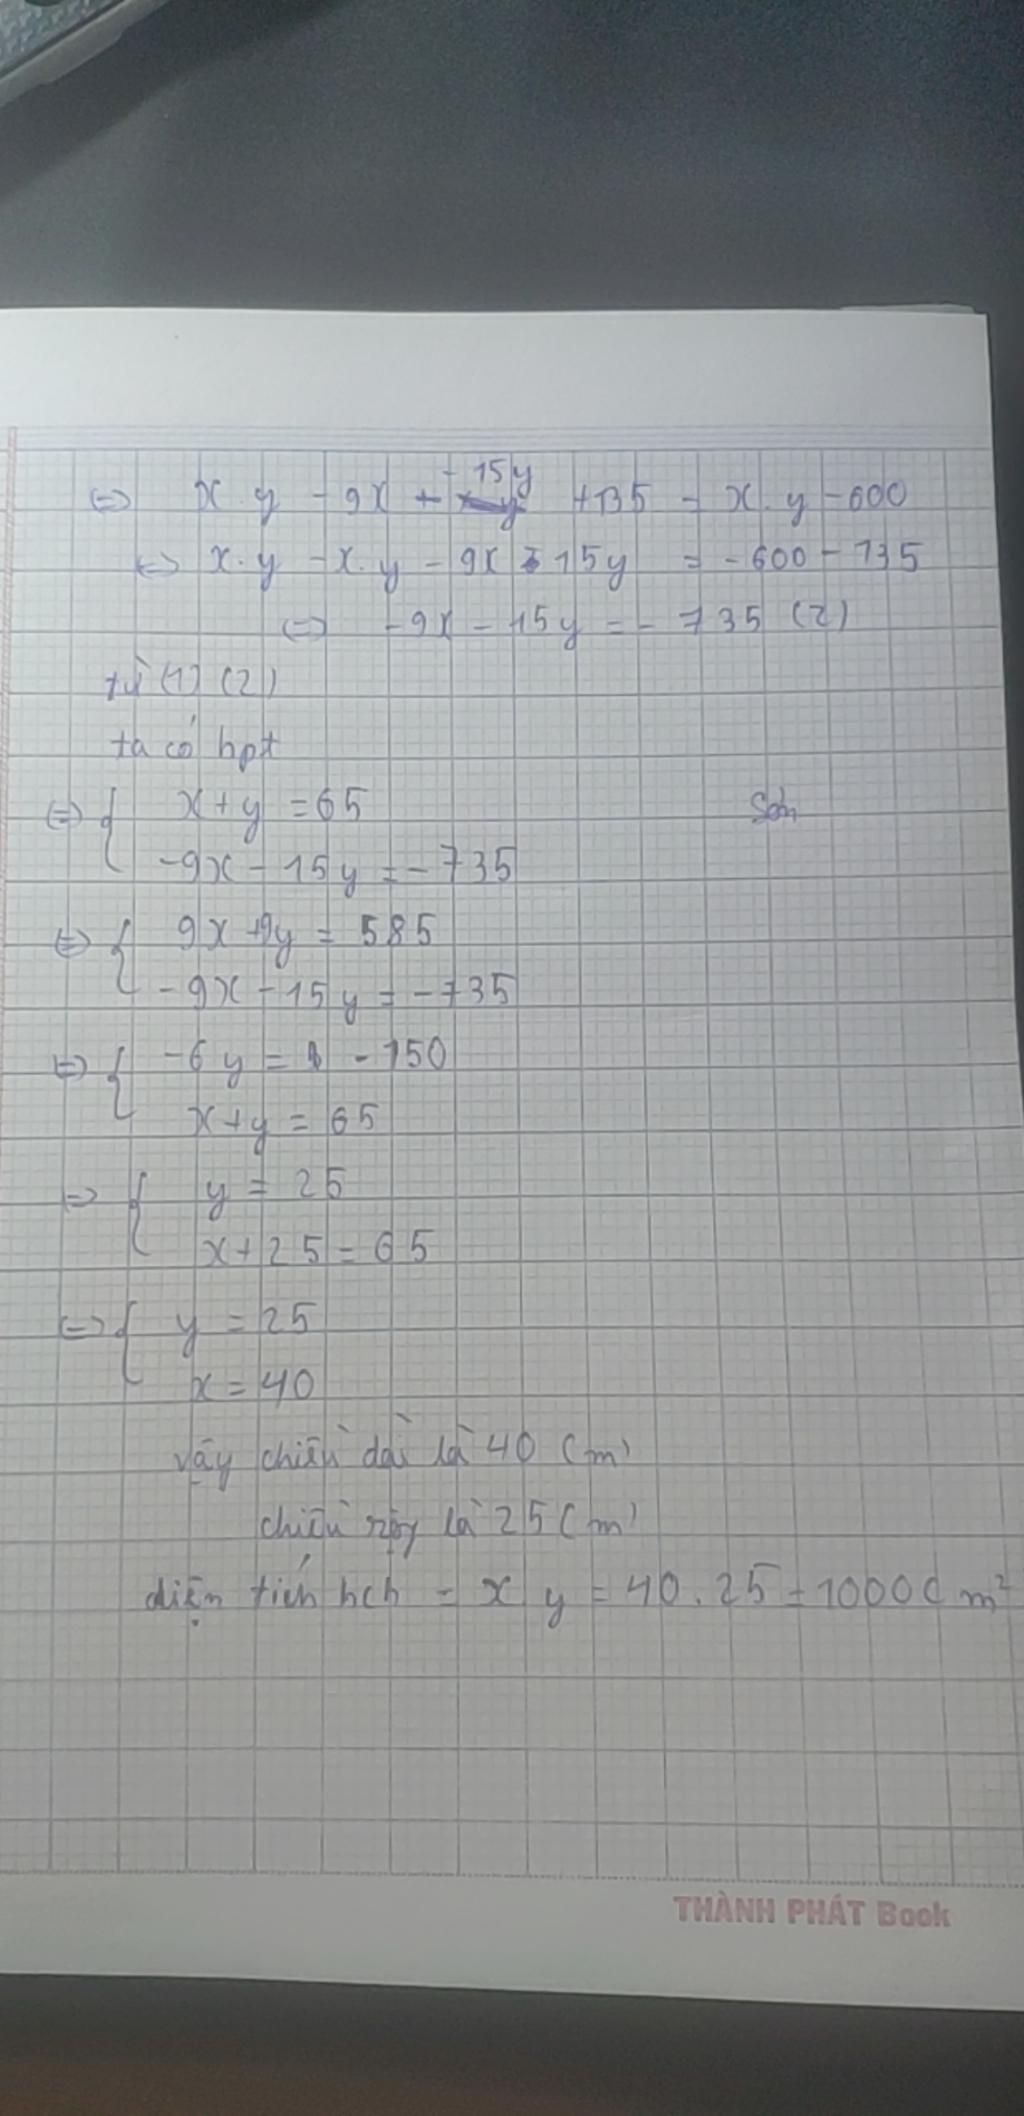 <=> x.y - 9x - 15y + 135 = x.y - 600
<=> x.y - x.y - 9x - 15y = -600 - 135
<=> -9x - 15y = - 735 (2)
từ (1) (2)
ta có hpt
<=> { x + y = 65
-9x - 15y = - 735
<=> { 9x + 9y = 585
-9x - 15y = - 735
<=> { -6y = - 150
x + y = 65
=> { y = 25
x + 25 = 65
<=> { y = 25
x = 40
vậy chiều dài là 40 (m)
chiều rộng là 25 (m)
diện tích hcn = x y = 40.25 = 1000 ( m²
THÀNH PHÁT Book